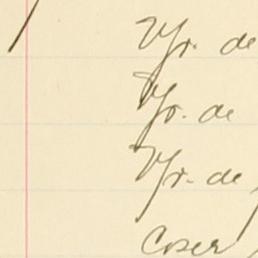 Yr. de
Yr. de
Yr. de
Coser